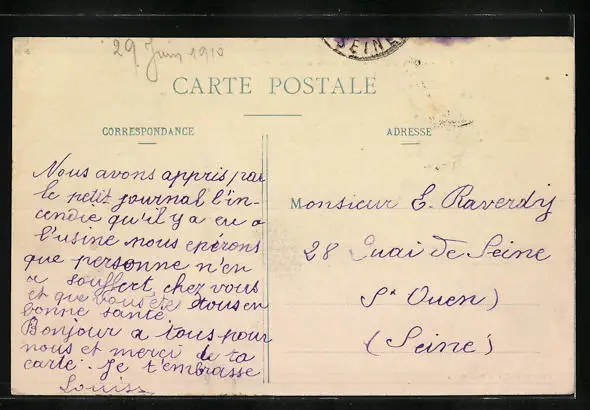 29 Juin 1910
SEINE
CARTE POSTALE
CORRESPONDANCE
ADRESSE
Nous avons appris par
le petit journal l'in-
cendie qu'il y a eu a
l'usine nous epérons
que personne n'en
a souffert, chez vous
et que vous ête tous en
bonne santé
Bonjour a tous pour
nous et merci de ta
carte. Je t'embrasse
Monsieur E. Raverdy
28 Quai de Seine
St Ouen)
(Seine)